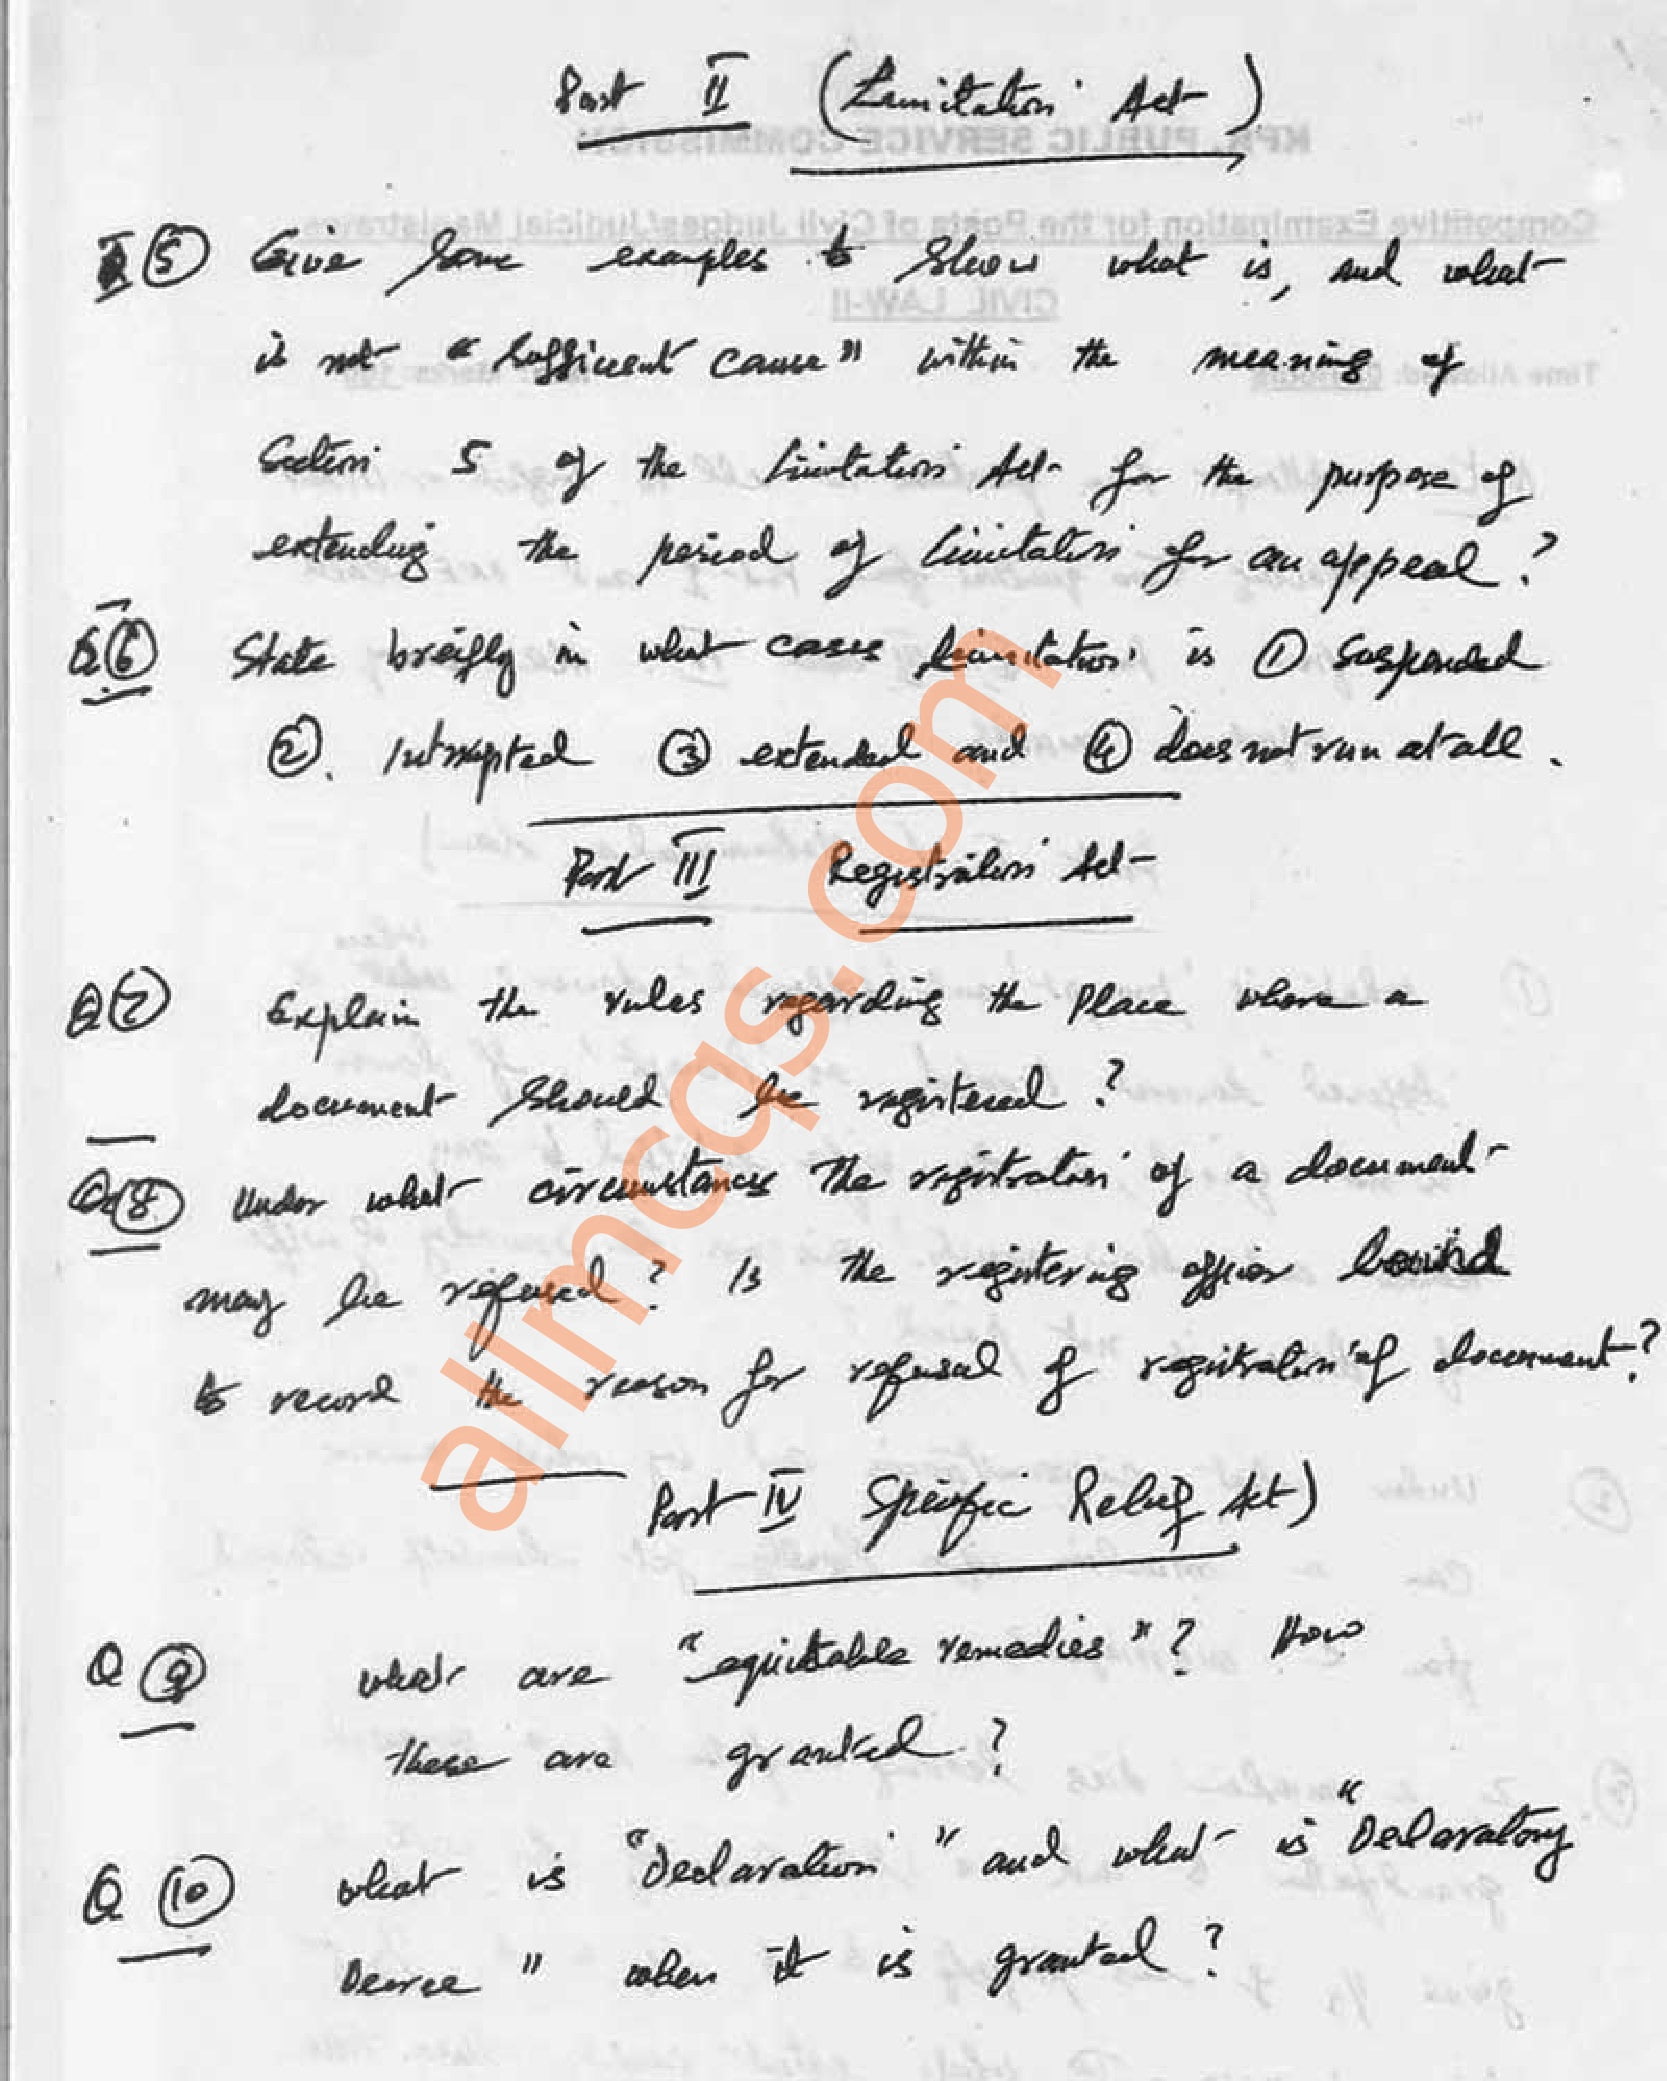 Part II (Limitation Act)
Q 5 Give some examples to show what is, and what
is not "Sufficient cause" within the meaning of
Section 5 of the Limitation Act for the purpose of
extending the period of limitation for an appeal?
Q 6 State breifly in what cases Limitation is ① suspended
②. Intrrupted ③ extended and ④ does not run at all.
Part III Registration Act
Q 7 Explain the rules regarding the Place where a
document should be registered?
Q 8 Under what circumstances the registration of a document
may be refused? Is the registering officer bound
to record the reason for refusal of registration of document?
Part IV Specific Relief Act)
Q 9 what are "equitable remedies"? How
these are granted?
Q 10 what is "Declaration" and what is "Declaratory
Decree" when it is granted?
allmcqs.com
KPK PUBLIC SERVICE COMMISSION
Competitive Examination for the Posts of Civil Judges/Judicial Magistrates
CIVIL LAW-II